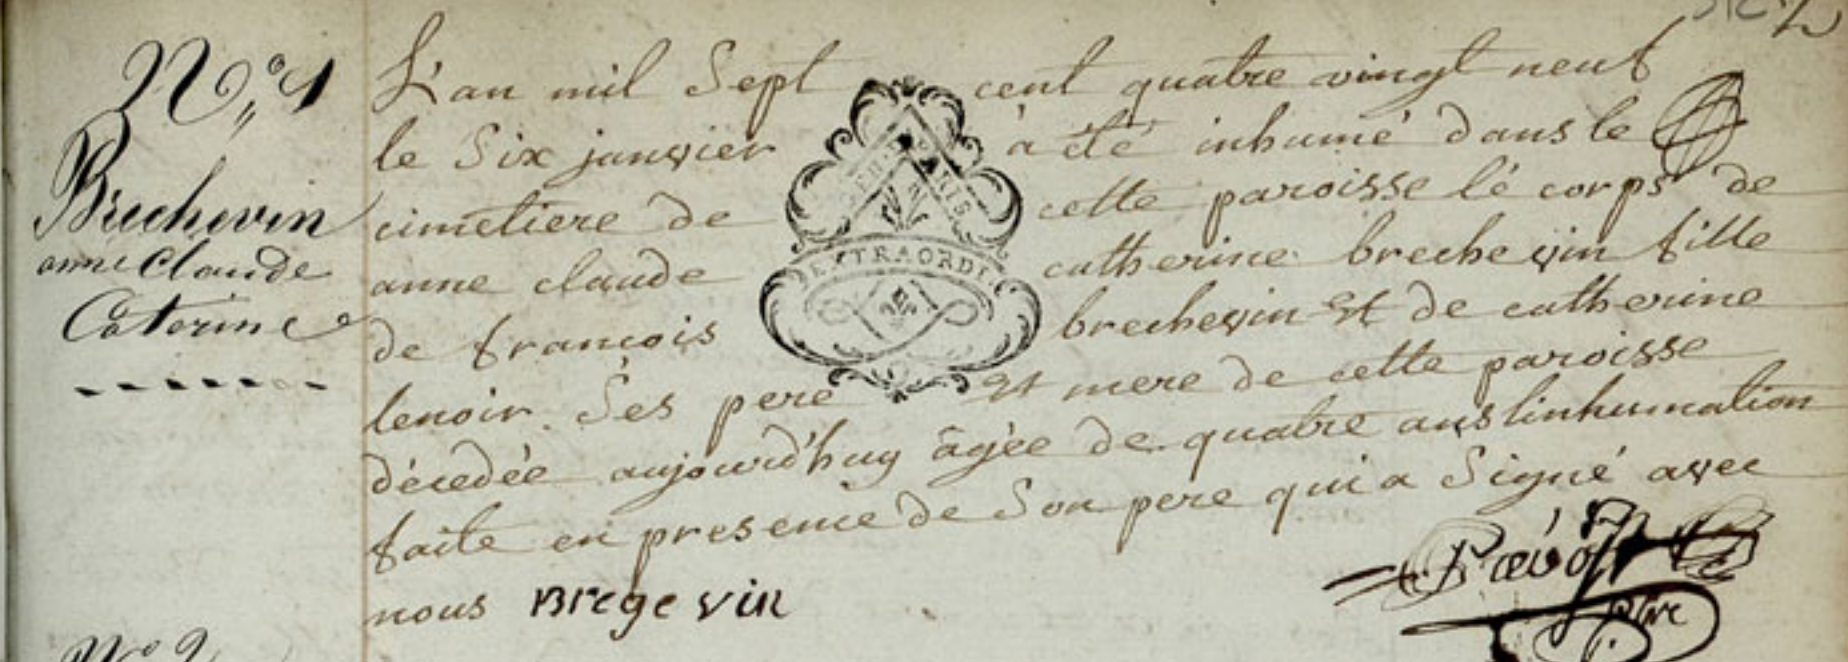 N° 1
Brechevin
anne Claude
Caterine
L'an mil Sept cent quatre vingt neuf
le Six janvier a été inhumé dans le
cimetiere de cette paroisse lé corps de
anne claude catherine brechevin fille
de francois brechevin Et de catherine
lenoir. Ses pere Et mere de cette paroisse
décedée aujourd'huy âgée de quatre ans linhumation
faite en presence de Son pere qui a Signé avec
nous Bregevin
EXTRAORDI
PARIS
N° 2